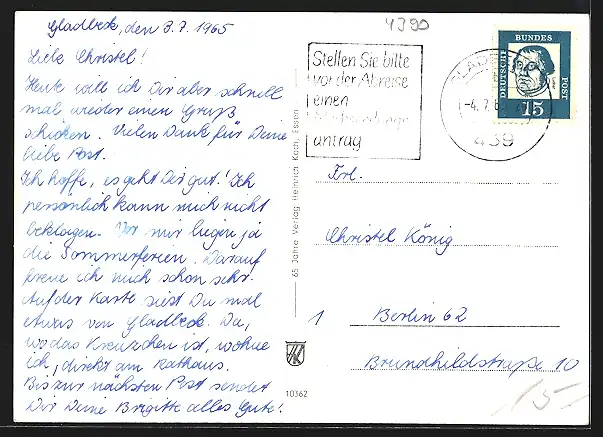 Gladbeck, den 3.7.1965
Liebe Christel!
Heute will ich Dir aber schnell
mal wieder einen Gruß
schicken. Vielen Dank für Deine
liebe Post.
Ich hoffe, es geht Dir gut! Ich
persönlich kann mich nicht
beklagen. Vor mir liegen ja
die Sommerferien. Darauf
freue ich mich schon sehr.
Auf der Karte siest Du mal
etwas von Gladbeck. Da,
wo das Kreuzchen ist, wohne
ich, direkt am Rathaus.
Bis zur nächsten Post sendet
Dir Deine Brigitte alles Gute!
65 Jahre Verlag Heinrich Koch, Essen
10362
4390
Stellen Sie bitte
vor der Abreise
einen
antrag
-4.7.6
439
DEUTSCHE
BUNDES
POST
15
Frl.
Christel König
1 Berlin 62
Brundhildstraße 10
15